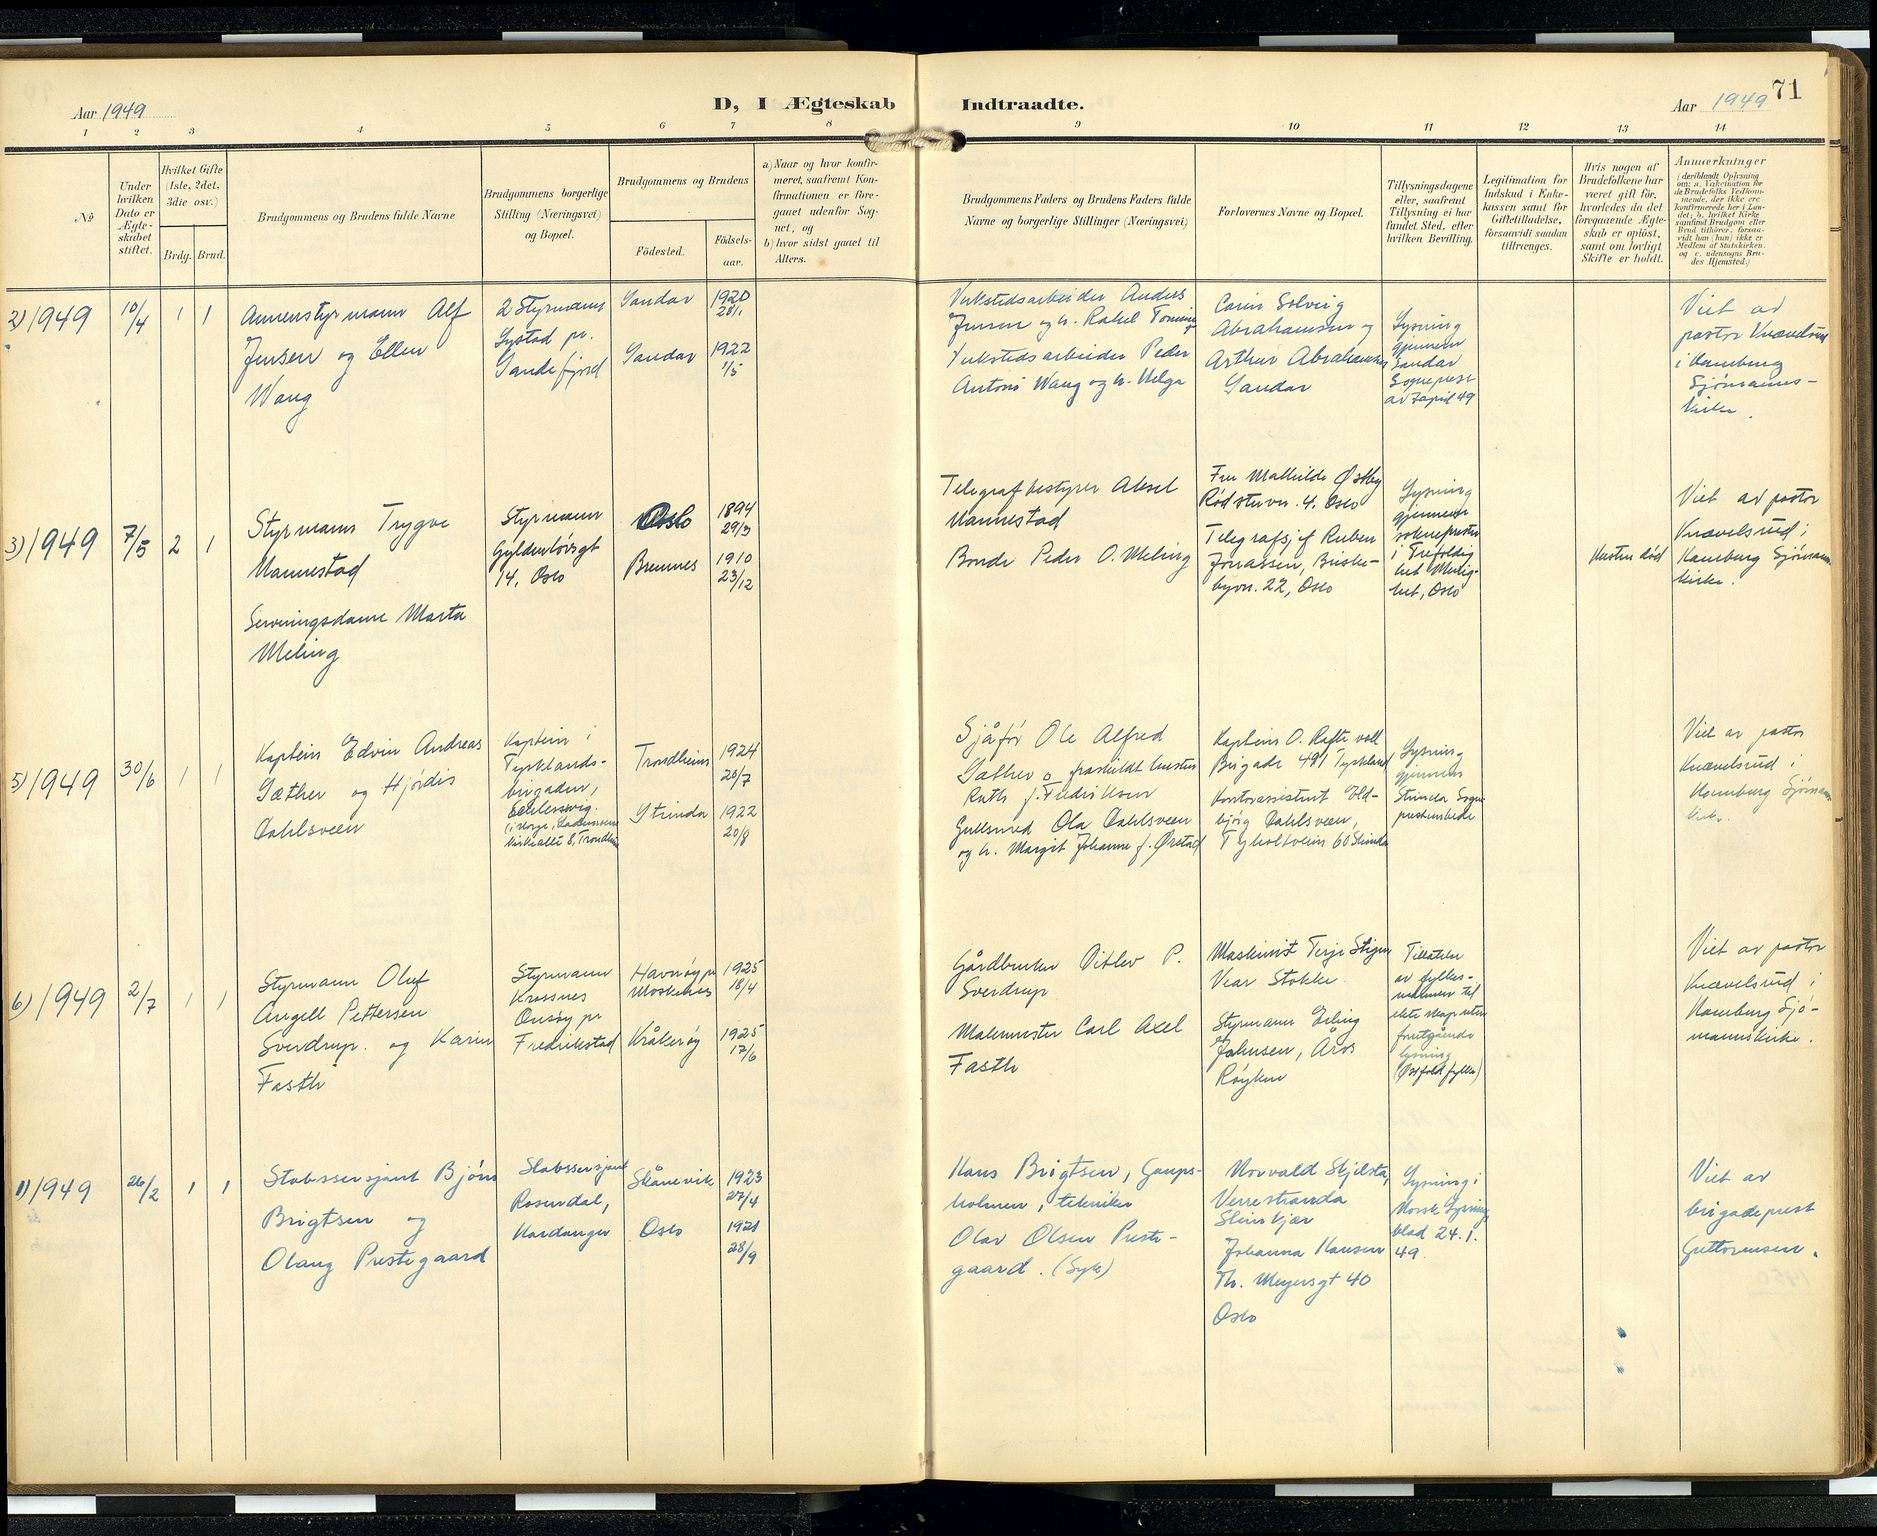 Aar 1949
D, I Ægteskab Indtraadte.
Aar 1949
71
1 2 3 4 5 6 7 8 9 10 11 12 13 14
No
Under hvilken Dato er Ægteskabet stiftet.
Hvilket Gifte (1ste, 2det, 3die osv.)
Brdg. Brud.
Brudgommens og Brudens fulde Navne
Brudgommens borgerlige Stilling (Næringsvei) og Bopæl.
Brudgommens og Brudens
Födested.
Födsels-aar.
a) Naar og hvor konfirmeret, saafremt Konfirmationen er foregaaet udenfor Sognet, og
b) hvor sidst gaaet til Alters.
Brudgommens Faders og Brudens Faders fulde Navne og borgerlige Stillinger (Næringsvei)
Forlovernes Navne og Bopæl.
Tillysningsdagene eller, saafremt Tillysning ei har fundet Sted, efter hvilken Bevilling.
Legitimation for Indskud i Enkekassen samt for Giftetilladelse, forsaavidt saadan tiltrænges.
Hvis nogen af Brudefolkene har været gift för, hvorledes da det foregaaende Ægteskab er oplöst, samt om lovligt Skifte er holdt.
Anmærkninger (deriblandt Oplysning om: a. Vakcination for de Brudefolks Vedkommende, der ikke ere konfirmerede her i Landet; b. hvilket Kirkesamfund Brudgom eller Brud tilhörer, forsaavidt han (hun) ikke er Medlem af Statskirken, og c. udensogns Brudes Hjemsted.)
2) 1949
10/4
1 1
Annenstyrmann Alf
Jensen og Ellen
Wang
2 Styrmann
Systad pr.
Sandefjord
Sandar
1920
28/1
Sandar
1922
1/5
Verkstedsarbeider Anders
Jensen og h. Rakel
Verkstedsarbeider Peder
Antoni Wang og h. Helga
Carin Solveig
Abrahamsen og
Arthur Abrahamsen
Sandar
Lysning
gjennem
Sandar
Sogneprest
av 7 april 49
Viet av
pastor Knævelsrud
i Hamburg
Sjömanns-
kirke.
3) 1949
7/5
2 1
Styrmann Trygve
Mannestad
Serveringsdame Marta
Meling
Styrmann
Gyldenløvsgt
14, Oslo
Oslo
1894
29/3
Bremnes
1910
23/12
Telegrafbestyrer Aksel
Mannestad
Bonde Peder O. Meling
Fru Mathilde Østby
Rødstuvn. 4. Oslo
Telegrafsjef Ruben
Jonassen, Briske-
byvn. 22, Oslo
Lysning
gjennem
soknepresten
i Trefoldig
het Menig-
het, Oslo
Husten død
Viet av pastor
Knævelsrud i
Hamburg Sjömanns
kirke.
5) 1949
30/6
1 1
Kaptein Edvin Andreas
Sæther og Hjördis
Dahlsveen
Kaptein i
Tysklands-
brigaden,
Schleswig.
(i Norge, Lademoens
Kirkeallé 8, Trondheim
Trondheim
1924
20/7
Strinda
1922
20/8
Sjåför Ole Alfred
Sæther o fraskildt hustru
Ruth f. Fredriksen
Gullsmed Ola Dahlsveen
og h. Margit Johanne f. Ørstad
Kaptein O. Røfte voll
Brigade 491 Tyskland
Kontorassistent Eld-
björg Dahlsveen,
Tyholtveien 60 Strinda
Lysning
gjennem
Strinda Sogne
prestembede
Viet av pastor
Knævelsrud i
Hamburg Sjömanns
kirke.
6) 1949
2/7
1 1
Styrmann Oluf
Angell Pettersen
Sverdrup. og Karin
Fasth
Styrmann
Krossnes
Onsøy pr
Fredrikstad
Havnöy pr
Moskenes
1925
18/4
Kråkerøy
1925
17/6
Gårdbruker Ditlev P.
Sverdrup
Malermester Carl Axel
Fasth
Maskinist Terje Stigen
Viar Stokke.
Styrmann Erling
Johnsen, Åros
Røyken
Tillatelse
av fylkes-
mannen til
ekteskap uten
foregående
lysning
(Østfold fylke)
Viet av pastor
Knævelsrud i
Hamburg Sjö-
mannskirke.
1) 1949
26/2
1 1
Stabssersjant Bjørn
Brigtsen og
Olaug Prestegaard
Stabssersjant
Rosendal,
Hardanger
Skånevik
1923
27/4
Oslo
1921
28/9
Hans Brigtsen, Gaups-
holmen, tekniker
Olav Olsen Preste-
gaard. (Syk)
Norvald Skjelsta,
Verrestranda
Steinkjær
Johanna Hansen
Th. Meyersgt 40
Oslo
Lysning i
Norsk Lysnings
blad 24.1.
49.
Viet av
brigadeprest
Guttormsen.